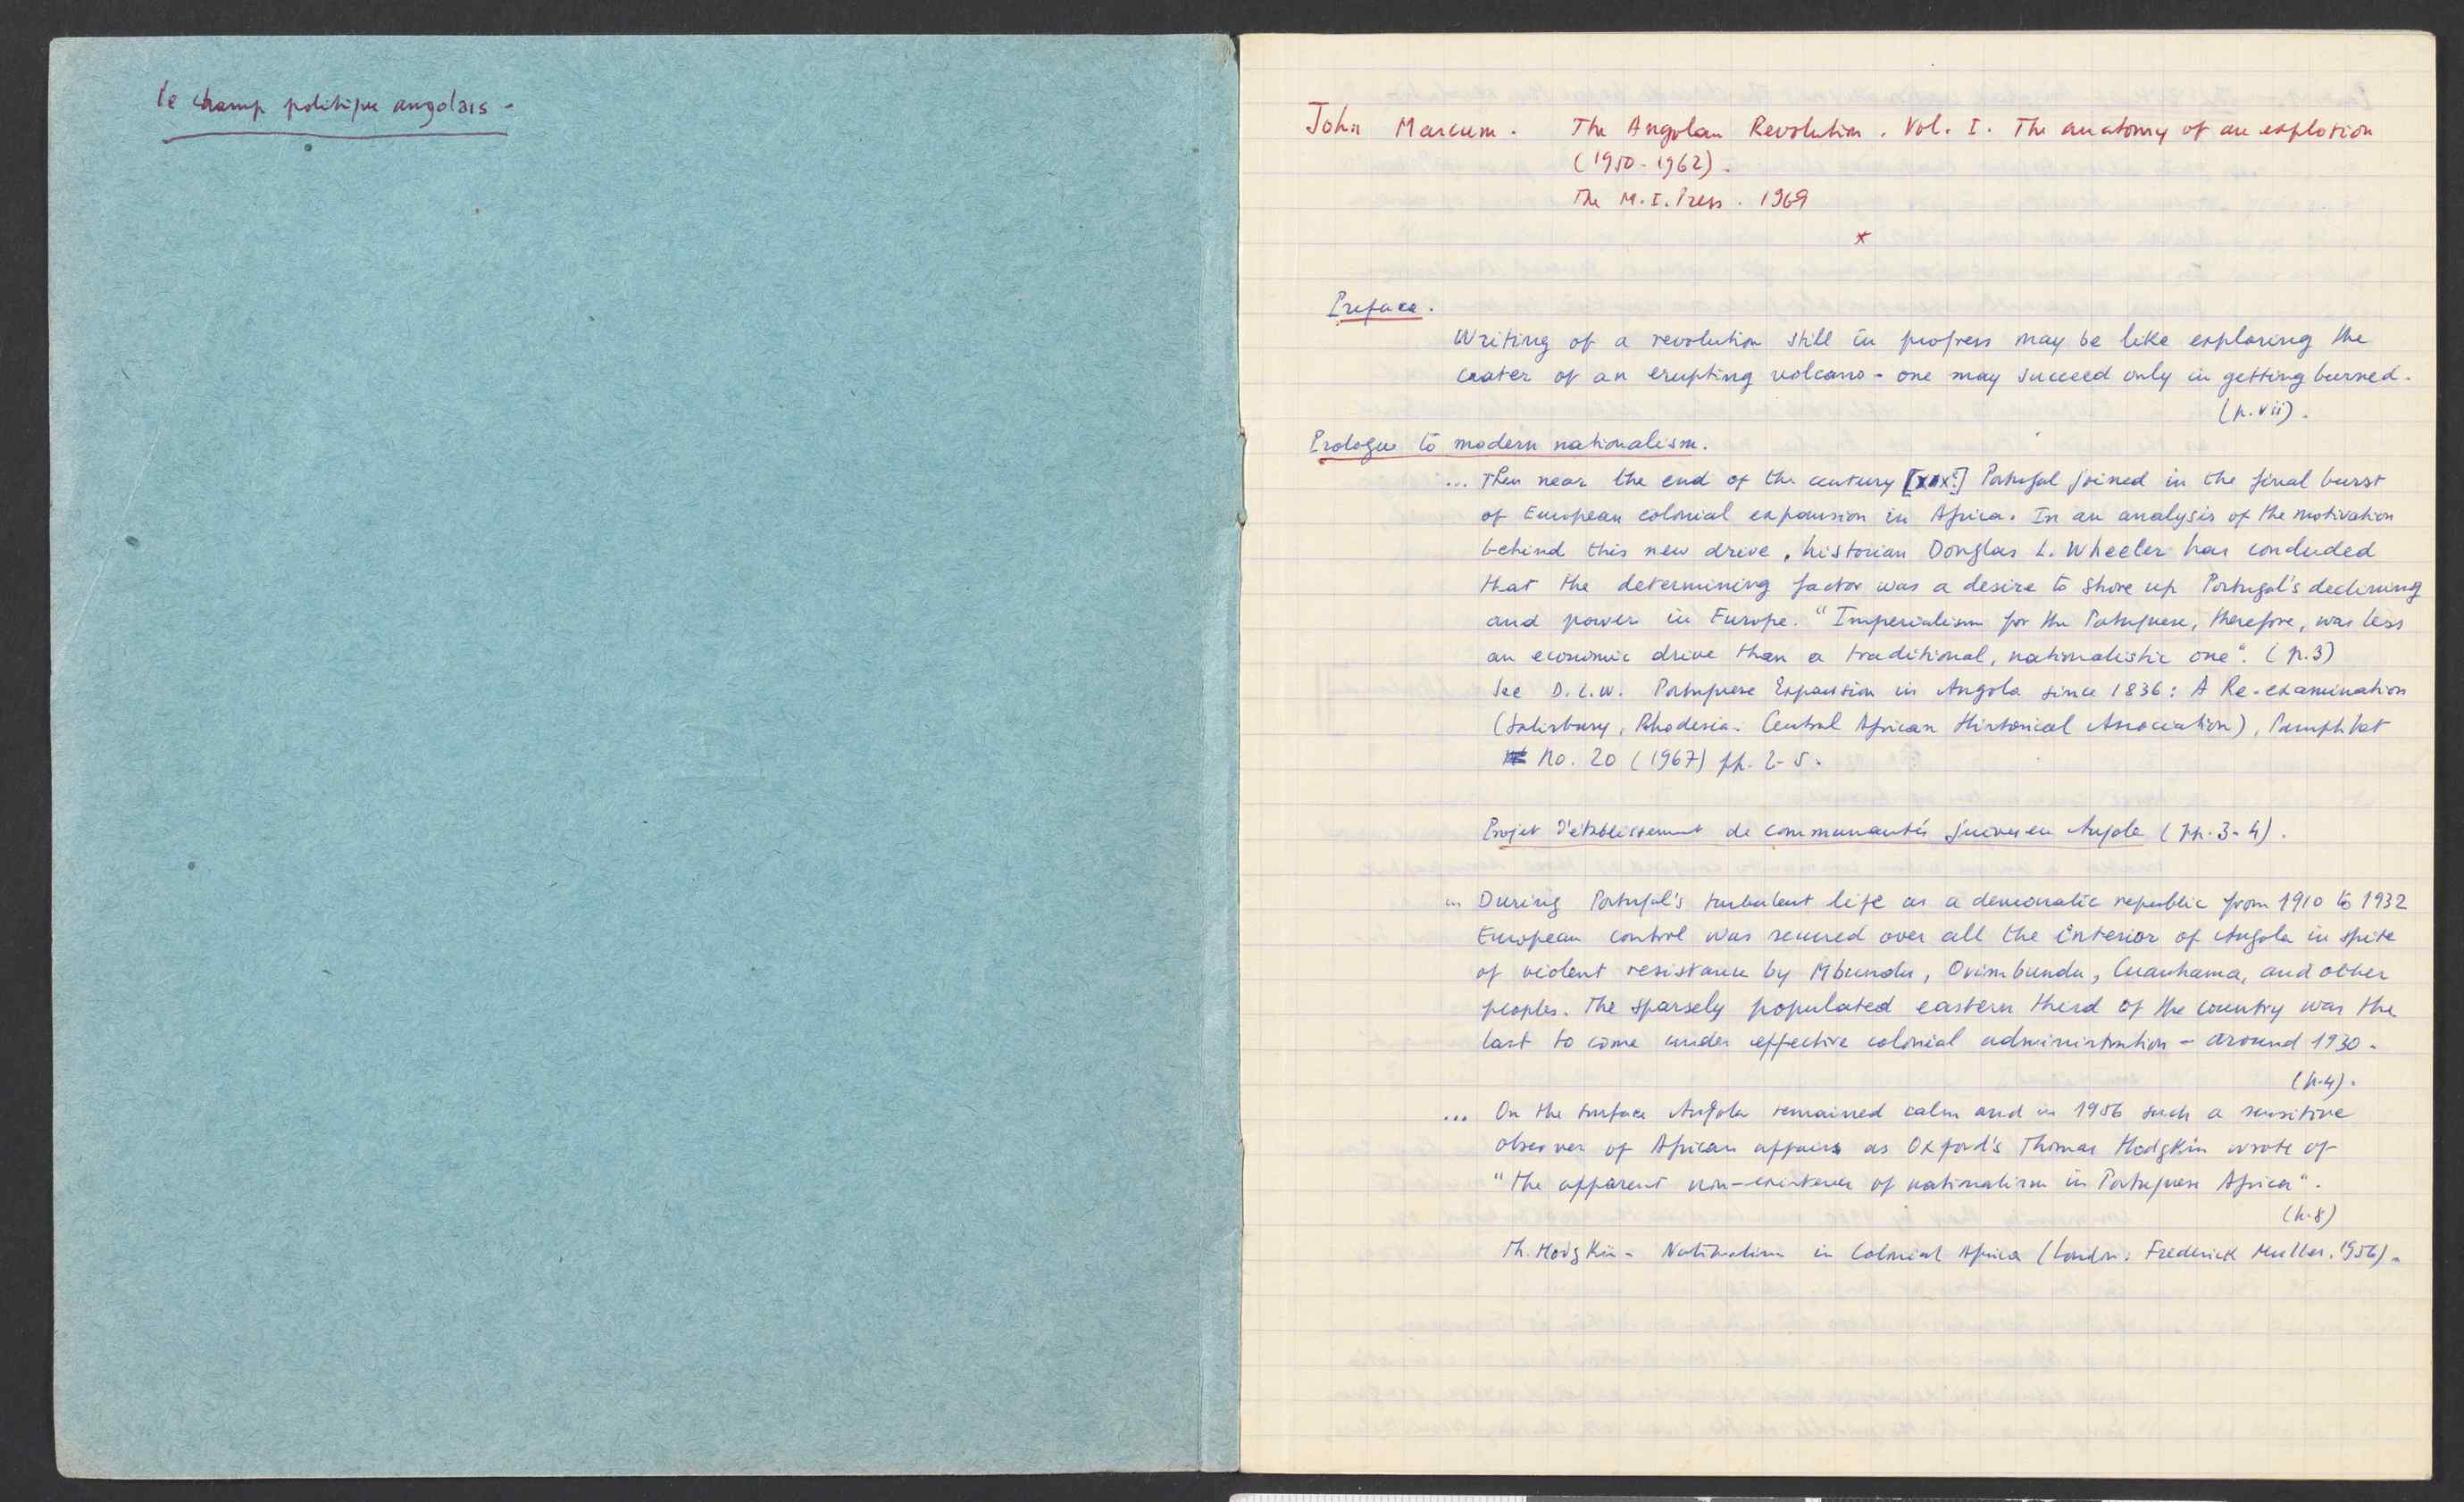 le champ politique angolais -
John Marcum. The Angolan Revolution. Vol. I. The anatomy of an explosion
(1950-1962).
The M.I. Press. 1969
*
Preface.
Writing of a revolution still in progress may be like exploring the
crater of an erupting volcano - one may succeed only in getting burned.
(p. vii).
Prologue to modern nationalism.
... Then near the end of the century [XIXe] Portugal joined in the final burst
of European colonial expansion in Africa. In an analysis of the motivation
behind this new drive, historian Douglas L. Wheeler has concluded
that the determining factor was a desire to shore up Portugal's declining
and power in Europe. "Imperialism for the Portuguese, therefore, was less
an economic drive than a traditional, nationalistic one". (p.3)
See D.L.W. Portuguese Expansion in Angola since 1836: A Re-examination
(Salisbury, Rhodesia: Central African Historical Association), Pamphlet
No. 20 (1967) pp. 2-5.
Projet d'établissement de communautés juives en Angola (pp. 3-4).
... During Portugal's turbulent life as a democratic republic from 1910 to 1932
European control was secured over all the interior of Angola in spite
of violent resistance by Mbundu, Ovimbundu, Cuanhama, and other
peoples. The sparsely populated eastern third of the country was the
last to come under effective colonial administration - around 1930.
(p.4).
... On the surface Angola remained calm and in 1956 such a sensitive
observer of African affairs as Oxford's Thomas Hodgkin wrote of
"the apparent non-existence of nationalism in Portuguese Africa".
(p.8)
Th. Hodgkin - Nationalism in Colonial Africa (London: Frederick Muller. 1956).